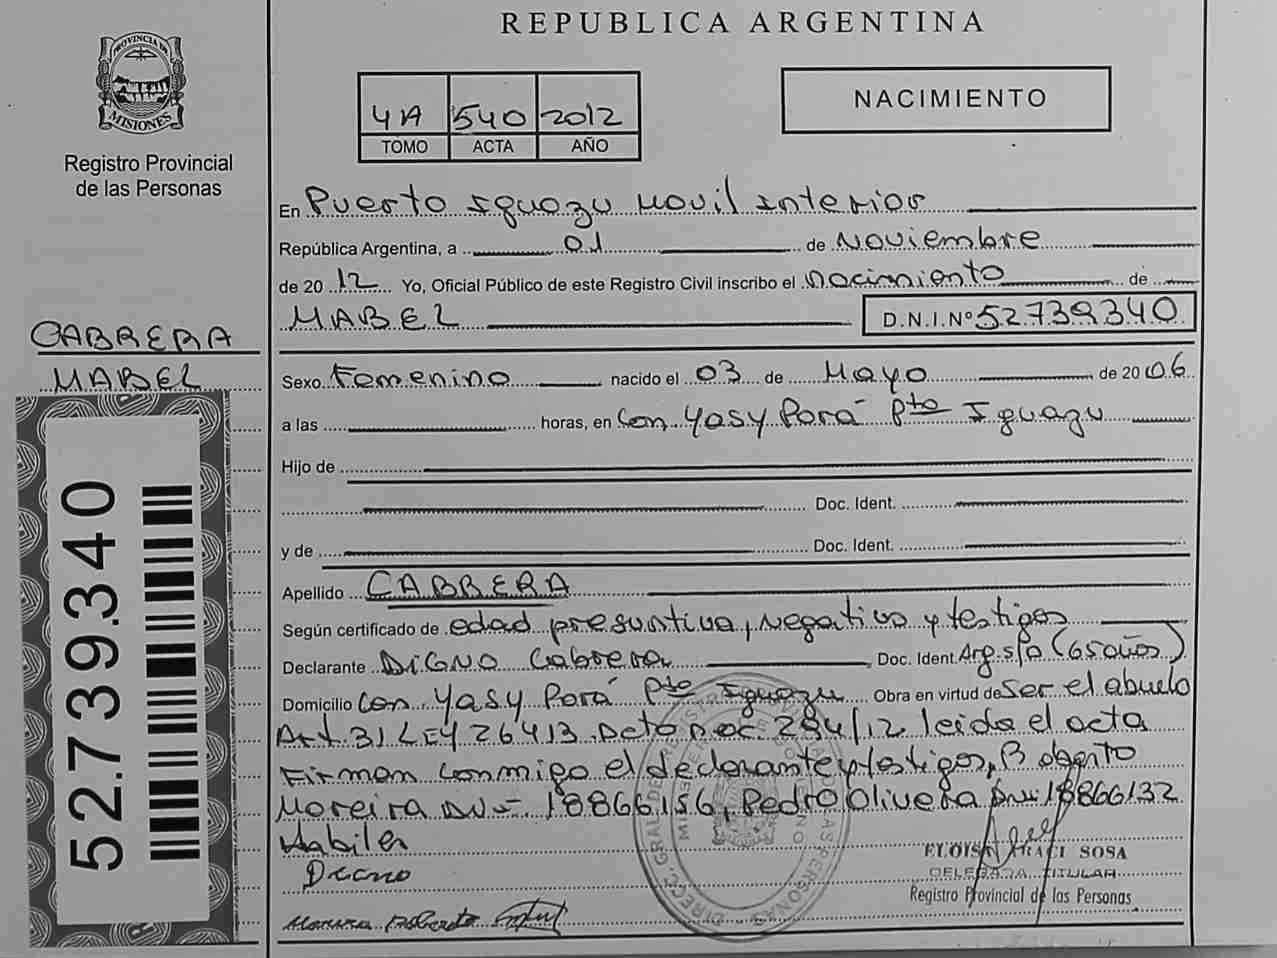 REPUBLICA ARGENTINA
PROVINCIA DE
MISIONES
Registro Provincial
de las Personas
4A 540 2012
TOMO ACTA AÑO
NACIMIENTO
En Puerto Iguazu Movil Interior
República Argentina, a 01 de Noviembre
de 2012 Yo, Oficial Público de este Registro Civil inscribo el Nacimiento de
MABEL D.N.I.Nº 52739340
CABRERA
MABEL
52.739.340
Sexo Femenino nacido el 03 de Mayo de 2006
a las horas, en Com Yasy Porá Pto Iguazu
Hijo de
Doc. Ident.
y de Doc. Ident.
Apellido CABRERA
Según certificado de edad presuntiva, negativo y testigos
Declarante Digno Cabrera Doc. Ident. Arg. s/d (65 años)
Domicilio Com Yasy Porá Pto Iguazu Obra en virtud de ser el abuelo
Art 31 LEY 26413 Dcto Poc 284/12 leida el acta
Firman conmigo el declarante y testigos, Roberto
Moreira DNI 18866156, Pedro Olivera DNI 18866132
Habiles
Digno
Moreira Roberto
ELOISA ARACI SOSA
DELEGADA TITULAR
Registro Provincial de las Personas